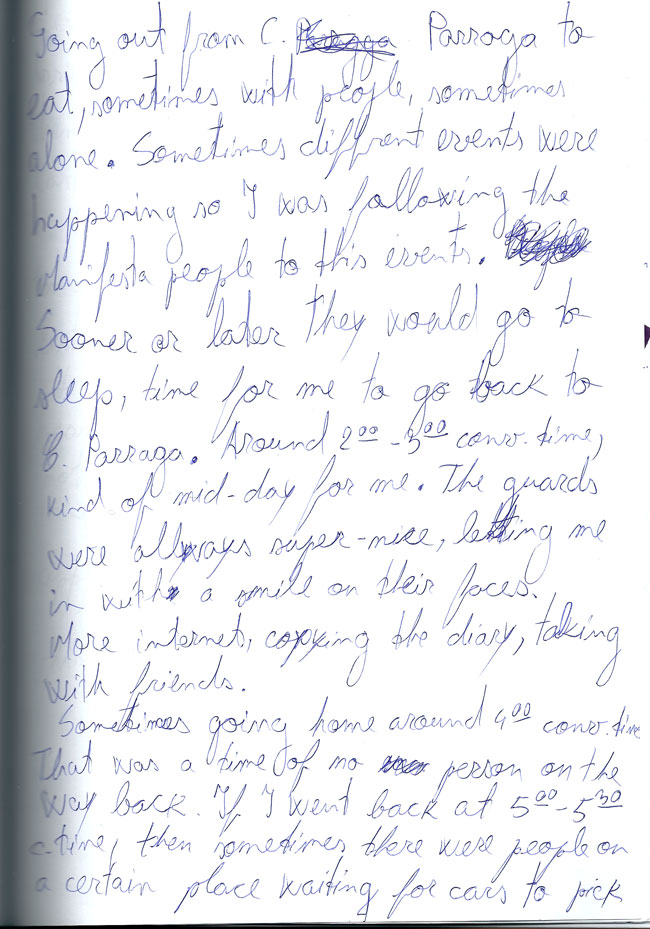 Going out from C. Parraga to
eat, sometimes with people, sometimes
alone. Sometimes diffrent events were
happening so I was following the
Manifesta people to this events.
Sooner or later they would go to
sleep, time for me to go back to
C. Parraga. Around 2 00 - 3 00 conv. time,
kind of mid-day for me. The guards
were allways super-nice, letting me
in with a smile on their faces.
More internet, copying the diary, talking
with friends.
Sometimes going home around 4 00 conv. time
That was a time of no person on the
way back. If I went back at 5 00 - 5 30
c. time, then sometimes there were people on
a certain place waiting for cars to pick